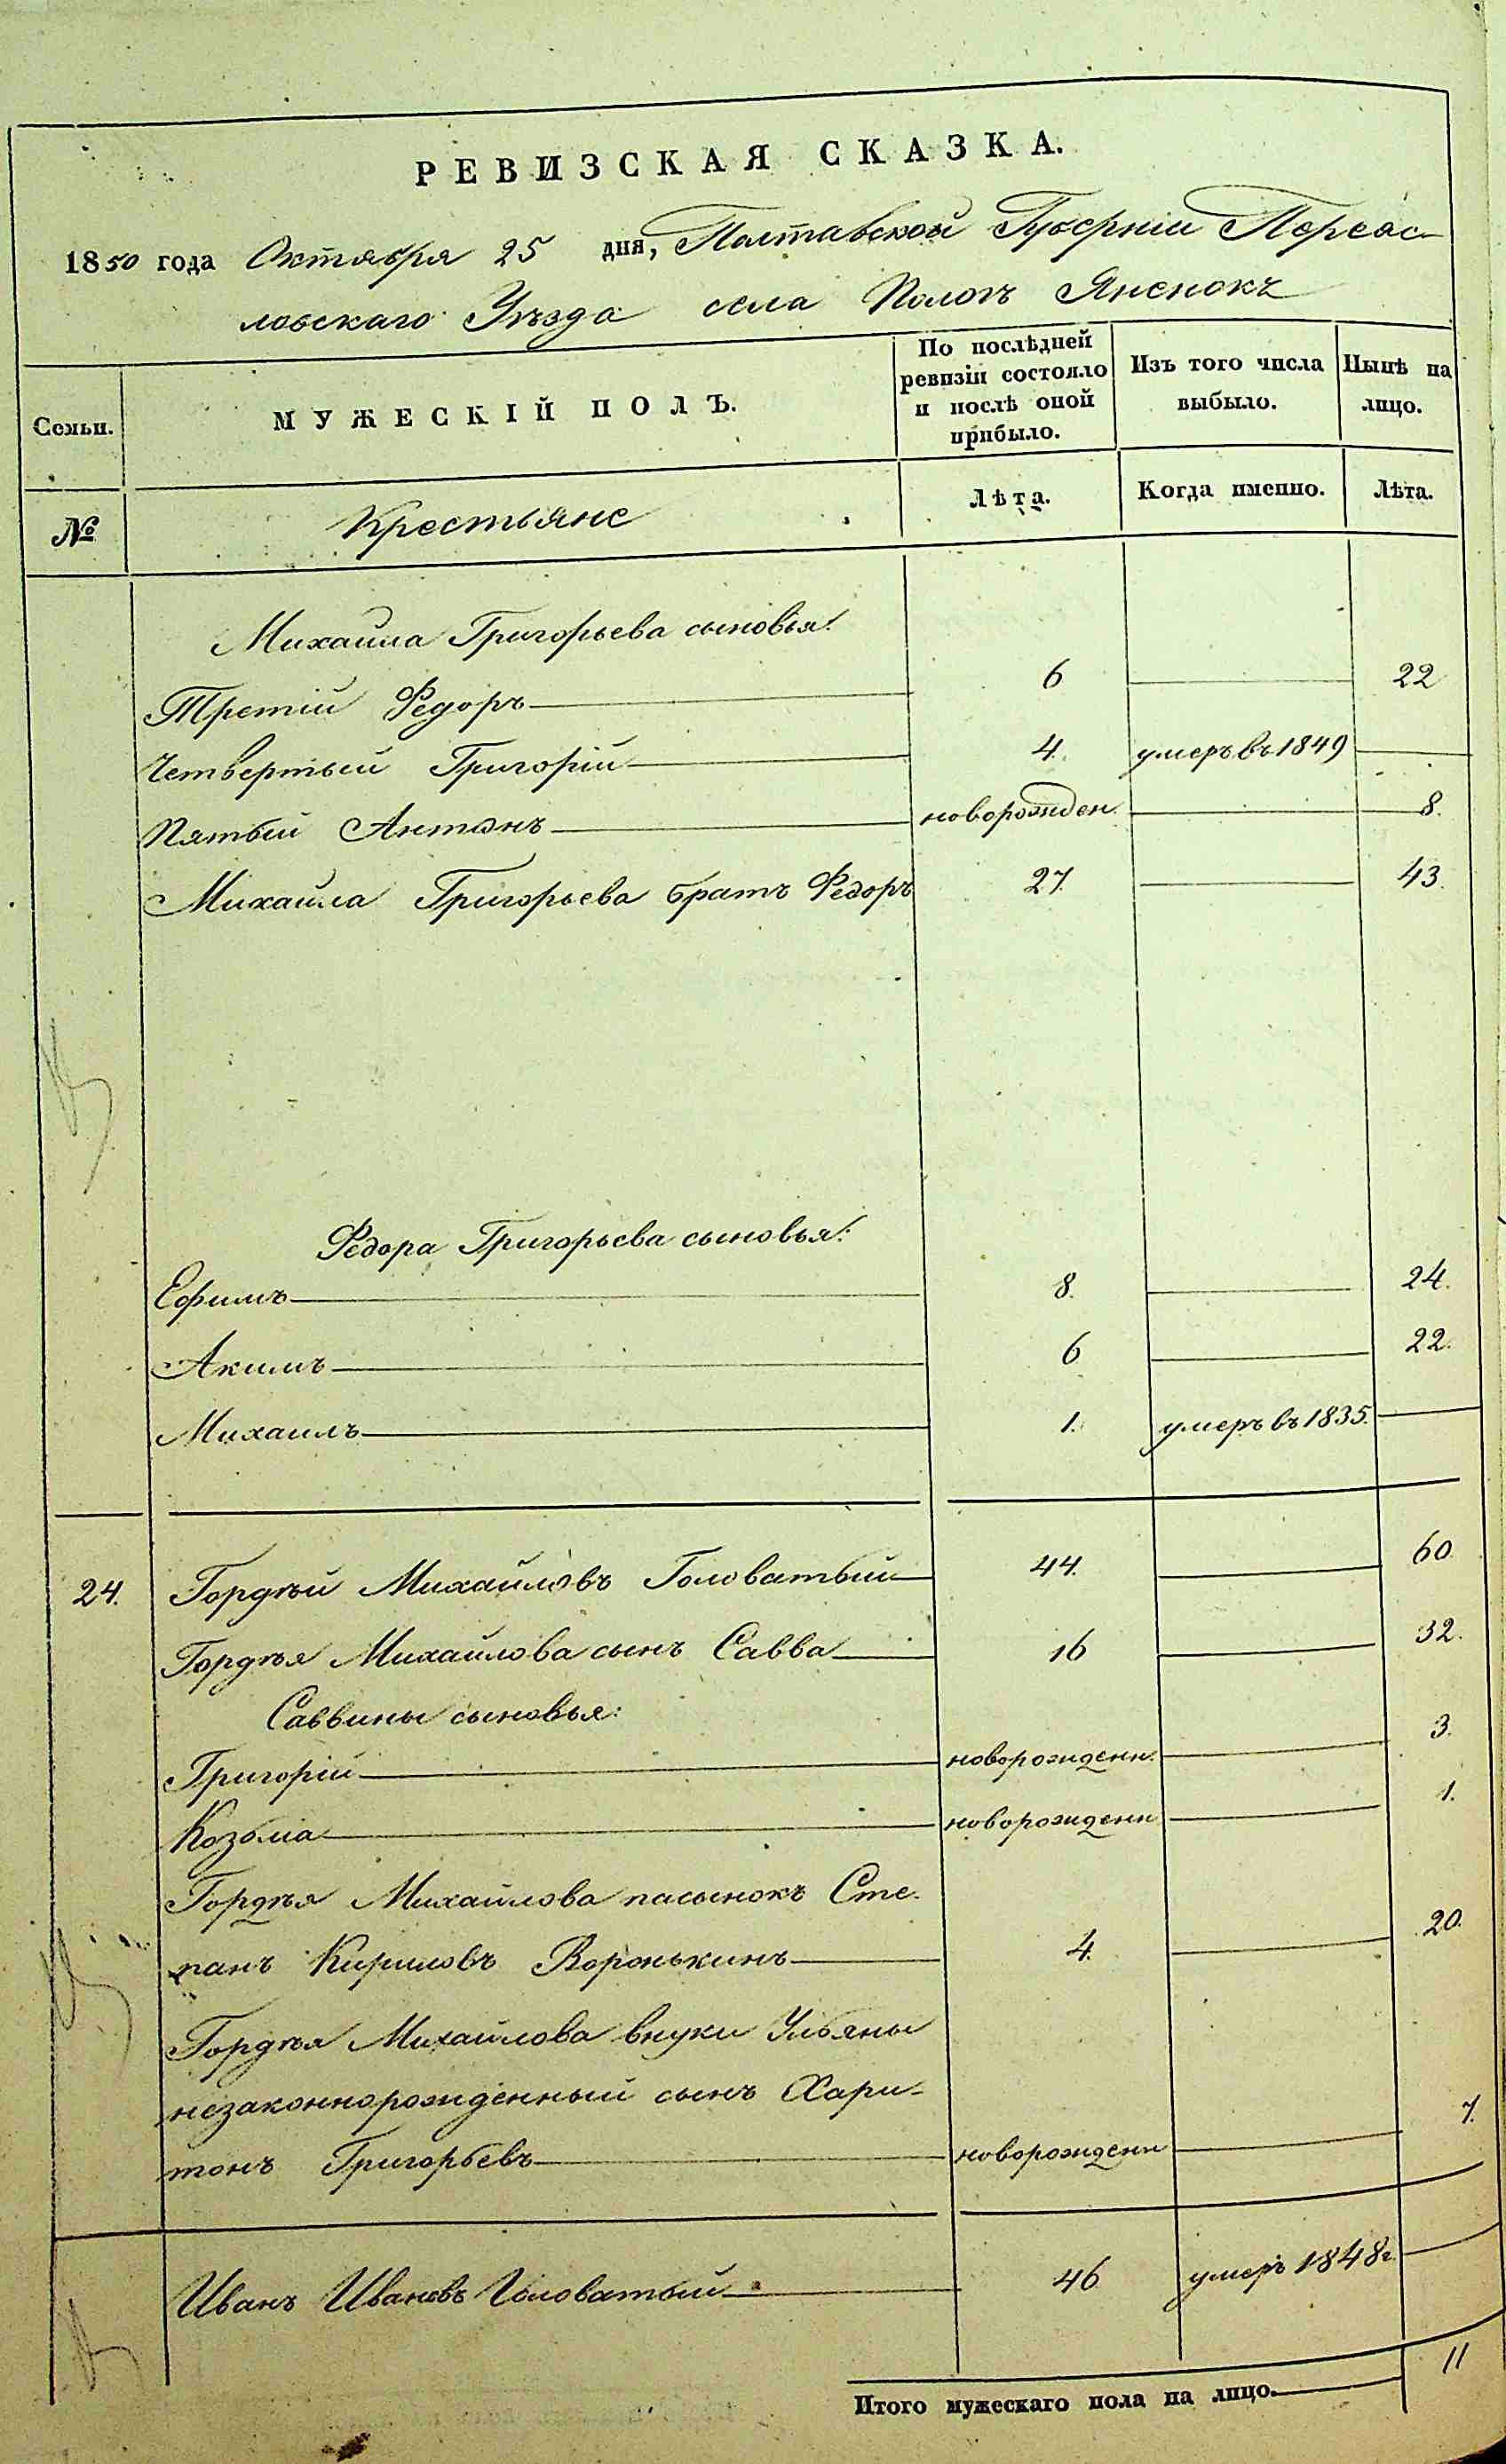 РЕВИЗСКАЯ СКАЗКА.
1850 года Октября 25 дня, Полтавской Губерніи Переяс-
ловскаго Уѣзда села Пологъ Яненокъ
Семьи.
МУЖЕСКІЙ ПОЛЪ.
По послѣдней ревизіи состояло и послѣ оной прибыло.
Изъ того числа выбыло.
Нынѣ на лицо.
№
Крестьяне
Лѣта.
Когда именно.
Лѣта.
Михаила Григорьева сыновья:
Третій Федоръ 6 22
Четвертый Григорій 4. умеръ въ 1849
Пятый Антонъ новорожден. 8.
Михаила Григорьева братъ Федоръ 27. 43.
Федора Григорьева сыновья:
Ефимъ 8. 24.
Акимъ 6 22.
Михаилъ 1. умеръ въ 1835.
24. Гордѣй Михайловъ Головатый 44. 60
Гордѣя Михайлова сынъ Савва 16 32.
Саввины сыновья:
Григорій новорожденн. 3.
Козьма новорожденн 1.
Гордѣя Михайлова пасынокъ Сте-
панъ Кириловъ Воронькинъ 4. 20.
Гордѣя Михайлова внуки Ульяны
незаконнорожденный сынъ Хари-
тонъ Григорьевъ новорожденн 7.
Иванъ Ивановъ Головатый 46 умеръ 1848г.
Итого мужескаго пола на лицо. 11